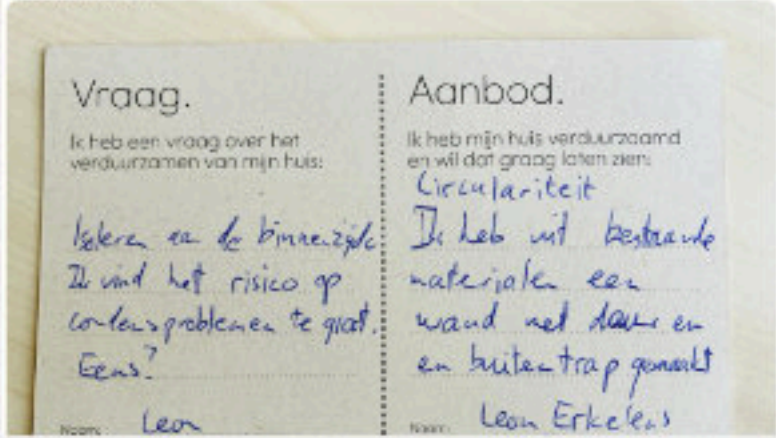 Vraag.
Ik heb een vraag over het
verduurzamen van mijn huis:
Isoleren aan de binnenzijde
Ik vind het risico op
condensproblemen te groot.
Eens?
Naam: Leon
Aanbod.
Ik heb mijn huis verduurzaamd
en wil dat graag laten zien:
Circulariteit
Ik heb uit bestaande
materialen een
wand met deur en
en buitentrap gemaakt
Naam: Leon Erkelens